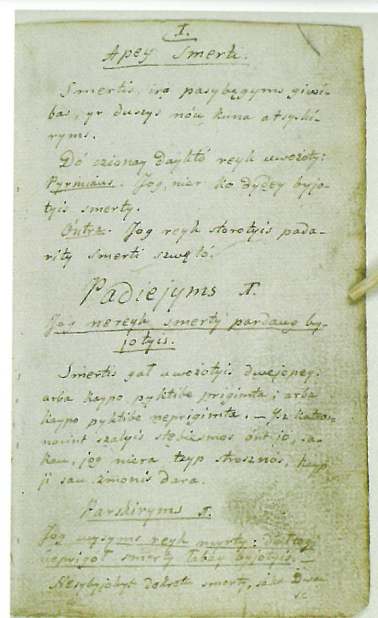 I.
Apey Smerti.
Smertis, irą pasybągyms giwi-
bas, yr duszys nóu kuna atsyski-
ryms.
Dó czionay dayktó reyk uwożoty:
Pyrmiaus. Jog, nier ko dydey byjo-
tyis smerty.
Óntra: Jog reyk storotyis pada-
rity smerti szwętó.
Padiejyms I.
Jog nereyk smerty pardaug by-
jotyis.
Smertis gał uwożotyis dwejopey:
arba kaypo pyktibe prigimta; arba
kaypo pyktibe neprigimta. — Jsz
szalyis stebiemos ónt jo, sa-
kau, jog niera tayp strosznós, kayp
ji sau żmonis dara.
Parskiryms I.
Jog wysyms reyk myrty:
neprigoł smerty łabay byjotyis. —
Nesybyjokyt smerty, saka